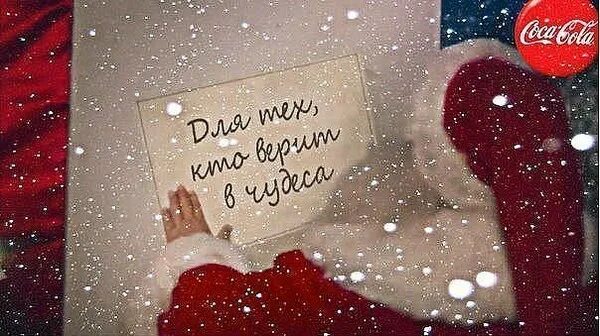 Coca-Cola
Для тех,
кто верит
в чудеса